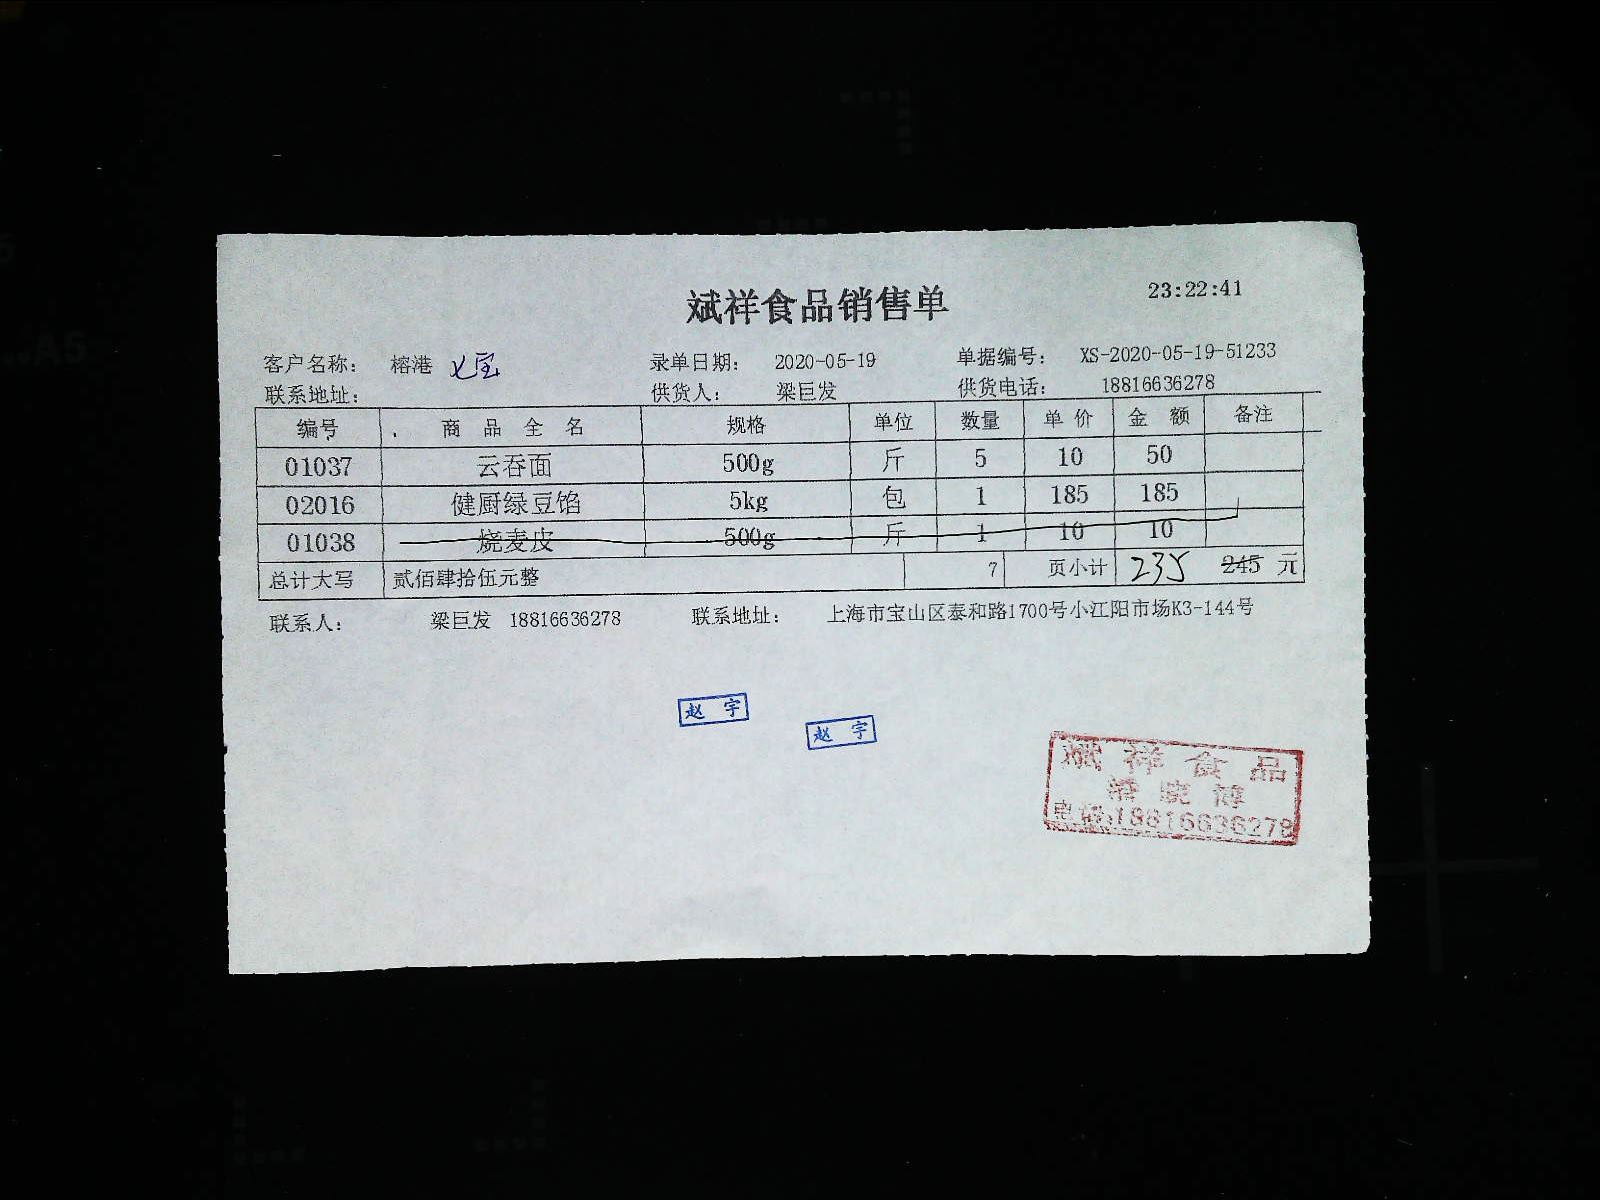 斌祥食品销售单 23:22:41
客户名称： 榕港 七宝 录单日期： 2020-05-19 单据编号： XS-2020-05-19-51233
联系地址： 供货人： 梁巨发 供货电话： 18816636278
编号 商品全名 规格 单位 数量 单价 金额 备注
01037 云吞面 500g 斤 5 10 50
02016 健厨绿豆馅 5kg 包 1 185 185
01038 烧麦皮 500g 斤 1 10 10
总计大写 贰佰肆拾伍元整 7 页小计 235 245 元
联系人： 梁巨发 18816636278 联系地址： 上海市宝山区泰和路1700号小江阳市场K3-144号
赵宇
赵宇
斌祥食品
晓博
电话:18816636278